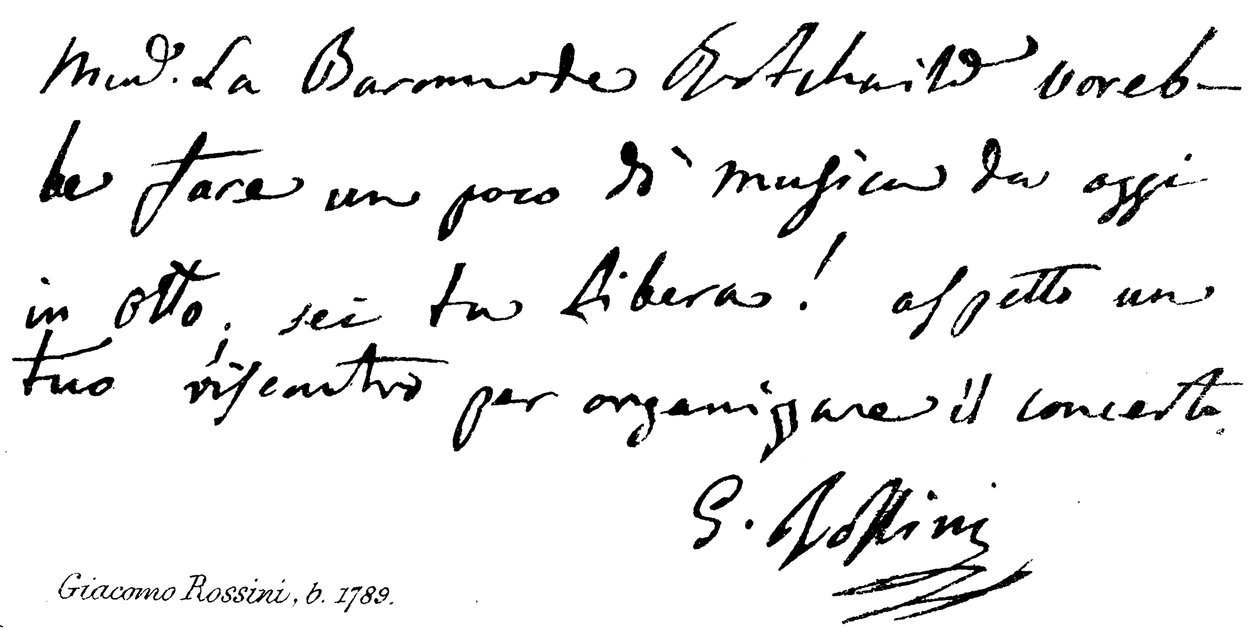 Mad. La Baronne de Rotchaild voreb-
be fare un poco di musica da oggi
in otto, sei tu libera! aspetto un
tuo riscontro per organizzare il concerto.
G. Rossini
Giacomo Rossini, b. 1789.